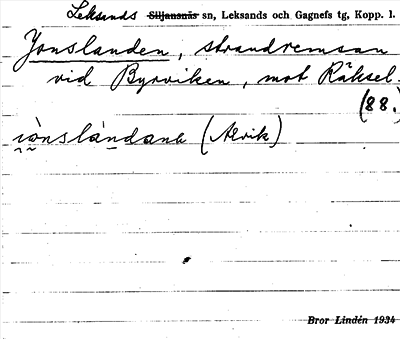 Leksands Siljansnäs sn, Leksands och Gagnefs tg, Kopp. l.
Jonslanden, strandremsan
vid Byrviken, mot Räksel.
(88.)
(Alvik)
Bror Lindén 1934